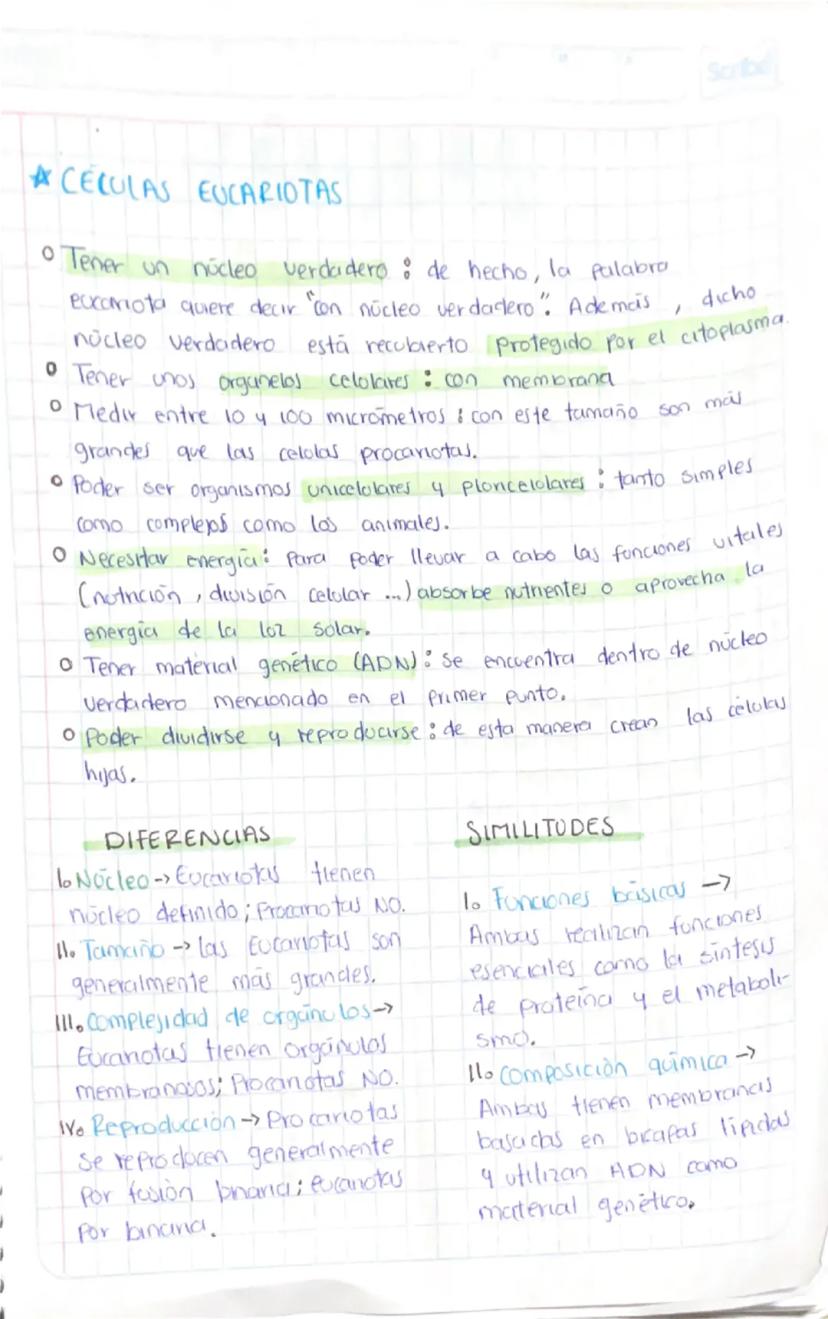 Scribe
☆ CÉLULAS EUCARIOTAS
o Tener un núcleo verdadero : de hecho, la palabra
eucariota quiere decir "con núcleo verdadero". Además , dicho
núcleo verdadero está recubierto protegido por el citoplasma.
o Tener unos organelos celulares : con membrana
o Medir entre 10 y 100 micrometros : con este tamaño son más
grandes que las celulas procariotas.
o Poder ser organismos unicelulares y pluricelulares : tanto simples
como complejos como los animales.
o Necesitar energía : Para poder llevar a cabo las funciones vitales
(nutrición , división celular ...) absorbe nutrientes o aprovecha la
energía de la luz solar.
o Tener material genético (ADN) : Se encuentra dentro de núcleo
verdadero mencionado en el primer punto.
o Poder dividirse y reproducirse : de esta manera crean las células
hijas.
DIFERENCIAS
I. Núcleo -> Eucariotas tienen
núcleo definido ; Procariotas NO.
II. Tamaño -> las Eucariotas son
generalmente más grandes.
III. Complejidad de orgánulos ->
Eucariotas tienen orgánulos
membranosos; Procariotas NO.
IV. Reproducción -> Procariotas
se reproducen generalmente
por fusión binaria; eucariotas
por binaria.
SIMILITUDES
I. Funciones básicas ->
Ambas realizan funciones
esenciales como la síntesis
de proteína y el metaboli-
smo.
II. Composición química ->
Ambas tienen membranas
basadas en bicapas lípidas
y utilizan ADN como
material genético.